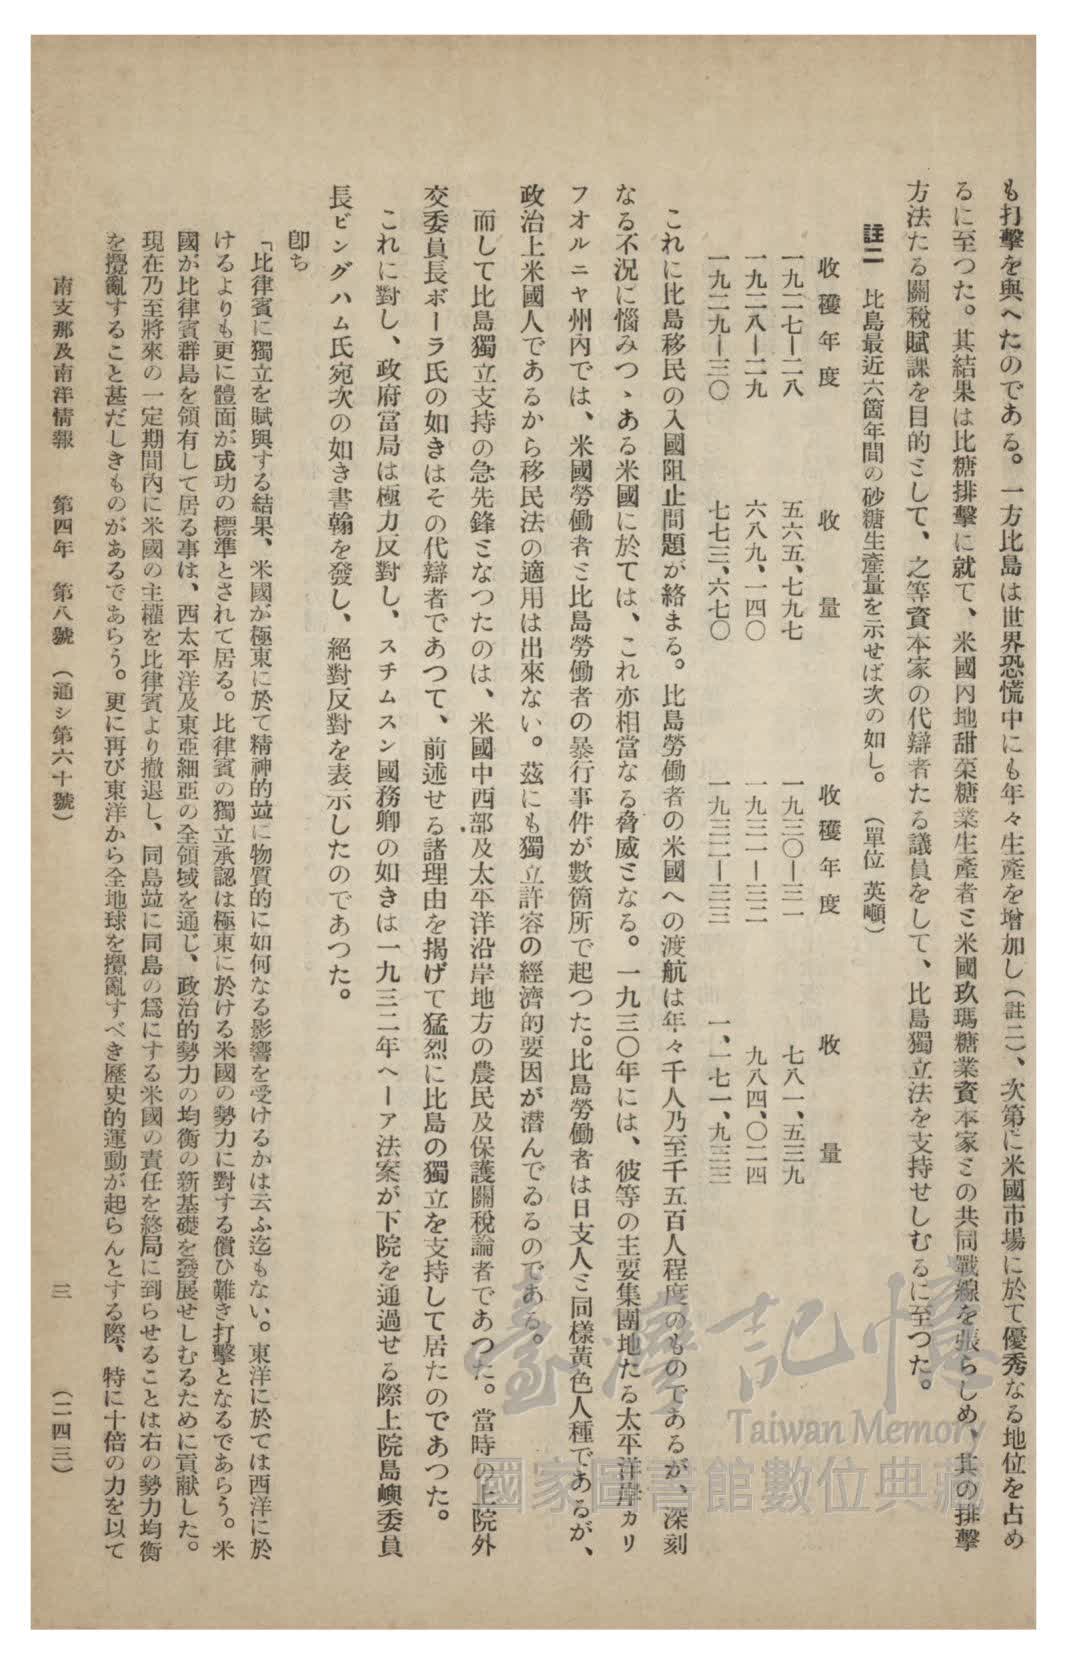 も打擊を與へたのである。一方比島は世界恐慌中にも年々生產を增加し（註二）、次第に米國市場に於て優秀なる地位を占め
るに至つた。其結果は比糖排擊に就て、米國內地甜菜糖業生產者ミ米國玖瑪糖業資本家ミの共同戰線を張らしめ、其の排擊
方法たる關稅賦課を目的ミして、之等資本家の代辯者たる議員をして、比島獨立法を支持せしむるに至つた。
註二　比島最近六箇年間の砂糖生產量を示せば次の如し。　（單位 英噸）
收穫年度　收量　收穫年度　收量
一九二七―二八　五六五、七九七　一九三〇―三一　七八一、五三九
一九二八―二九　六八九、一四〇　一九三一―三二　九八四、〇二四
一九二九―三〇　七七三、六七〇　一九三二―三三　一、一七一、九三三
これに比島移民の入國阻止問題が絡まる。比島勞働者の米國への渡航は年々千人乃至千五百人程度のものであるが、深刻
なる不況に惱みつゝある米國に於ては、これ亦相當なる脅威ミなる。一九三〇年には、彼等の主要集團地たる太平洋岸カリ
フオルニヤ州內では、米國勞働者ミ比島勞働者の暴行事件が數箇所で起つた。比島勞働者は日支人ミ同樣黃色人種であるが、
政治上米國人であるから移民法の適用は出來ない。茲にも獨立許容の經濟的要因が潛んでゐるのである。
而して比島獨立支持の急先鋒ミなつたのは、米國中西部及太平洋沿岸地方の農民及保護關稅論者であつた。當時の上院外
交委員長ボーラ氏の如きはその代辯者であつて、前述せる諸理由を揭げて猛烈に比島の獨立を支持して居たのであつた。
これに對し、政府當局は極力反對し、スチムスン國務卿の如きは一九三二年ヘーア法案が下院を通過せる際上院島嶼委員
長ビングハム氏宛次の如き書翰を發し、絕對反對を表示したのであつた。
卽ち
「比律賓に獨立を賦與する結果、米國が極東に於て精神的竝に物質的に如何なる影響を受けるかは云ふ迄もない。東洋に於ては西洋に於
けるよりも更に體面が成功の標準とされて居る。比律賓の獨立承認は極東に於ける米國の勢力に對する償ひ難き打擊となるであらう。米
國が比律賓群島を領有して居る事は、西太平洋及東亞細亞の全領域を通じ、政治的勢力の均衡の新基礎を發展せしむるために貢獻した。
現在乃至將來の一定期間內に米國の主權を比律賓より撤退し、同島竝に同島の爲にする米國の責任を終局に到らせることは右の勢力均衡
を攪亂すること甚だしきものがあるであらう。更に再び東洋から全地球を攪亂すべき歷史的運動が起らんとする際、特に十倍の力を以て
南支那及南洋情報　第四年　第八號　（通シ第六十號）　三　（二四三）
臺灣記憶
Taiwan Memory
國家圖書館數位典藏